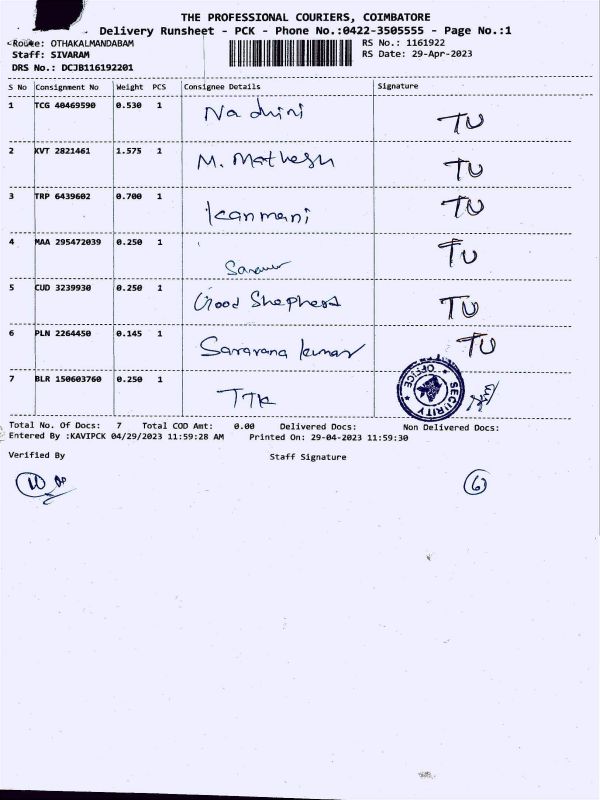 THE PROFESSIONAL COURIERS, COIMBATORE
Delivery Runsheet - PCK - Phone No.:0422-3505555 - Page No.:1
Route: OTHAKALMANDABAM RS No.: 1161922
Staff: SIVARAM RS Date: 29-Apr-2023
DRS No.: DCJB116192201
S No Consignment No Weight PCS Consignee Details Signature
1 TCG 40469590 0.530 1 Nadhini TU
2 KVT 2821461 1.575 1 M. Mathesh TU
3 TRP 6439602 0.700 1 Kanmani TU
4 MAA 295472039 0.250 1 TU
5 CUD 3239930 0.250 1 Good Shepherd TU
6 PLN 2264450 0.145 1 Saravana kumar TU
7 BLR 150603760 0.250 1 TTK
SECURITY OFFICE
Total No. Of Docs: 7 Total COD Amt: 0.00 Delivered Docs: Non Delivered Docs:
Entered By :KAVIPCK 04/29/2023 11:59:28 AM Printed On: 29-04-2023 11:59:30
Verified By Staff Signature
6